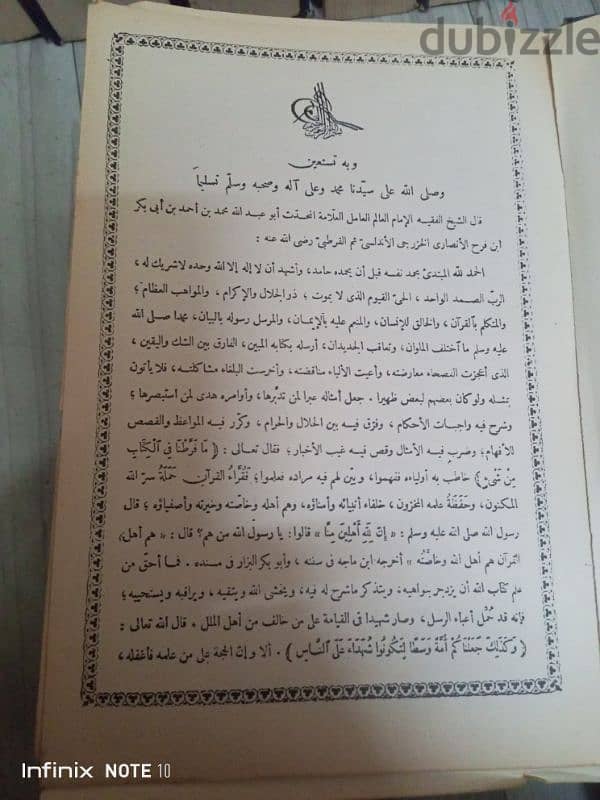 dubizzle
وبه نستعين
وصلى الله على سيّدنا محمد وعلى آله وصحبه وسلّم تسليما
قال الشيخ الفقيه الإمام العالم العامل العلّامة المحدّث أبو عبد الله محمد بن أحمد بن أبى بكر
ابن فرح الأنصارى الخزرجى الأندلسىّ ثم القرطبىّ رضى الله عنه :
الحمد لله المبتدئ بحمد نفسه قبل أن يحمده حامد، وأشهد أن لا إله إلا الله وحده لا شريك له ،
الربّ الصمد الواحد، الحىّ القيوم الذى لا يموت ؛ ذو الجلال والإكرام ، والمواهب العظام ؛
والمتكلم بالقرآن، والخالق للإنسان، والمنعم عليه بالإيمان، والمرسل رسوله بالبيان، محمدا صلى الله
عليه وسلم ما اختلف الملوان، وتعاقب الجديدان، أرسله بكتابه المبين، الفارق بين الشك واليقين ،
الذى أعجزت الفصحاء معارضته، وأعيت الألباء مناقضته، وأخرست البلغاء مشاكلته، فلا يأتون
بمثله ولو كان بعضهم لبعض ظهيرا . جعل أمثاله عبرا لمن تدبّرها، وأوامره هدى لمن استبصرها؛
وشرح فيه واجبات الأحكام ، وفرّق فيه بين الحلال والحرام ، وكرّر فيه المواعظ والقصص
للأفهام؛ وضرب فيه الأمثال وقص فيه غيب الأخبار؛ فقال تعالى : ﴿ مَا فَرَّطْنَا فِى الْكِتَابِ
مِنْ شَىْءٍ ﴾ خاطب به أولياءه ففهموا، وبيّن لهم فيه مراده فعلموا؛ فقُرّاء القرآن حَمَلَةُ سرّ الله
المكنون، وحَفَظَةُ علمه المخزون، خلفاء أنبيائه وأمناؤه، وهم أهله وخاصّته وخيرته وأصفياؤه ؛ قال
رسول الله صلى الله عليه وسلم : « إنّ لله أهلين منّا » قالوا: يا رسول الله من هم؟ قال : « هم أهل
القرآن هم أهل الله وخاصّته » أخرجه ابن ماجه فى سننه ، وأبو بكر البزار فى مسنده . فما أحق من
علم كتاب الله أن يزدجر بنواهيه، ويتذكر ما شرح له فيه، ويخشى الله ويتقيه، ويراقبه ويستحييه ؛
فإنه قد حُمّل أعباء الرسل، وصار شهيدا فى القيامة على من خالف من أهل الملل . قال الله تعالى :
﴿ وَكَذَلِكَ جَعَلْنَاكُمْ أُمَّةً وَسَطًا لِتَكُونُوا شُهَدَاءَ عَلَى النَّاسِ ﴾ . ألا وإنّ الحجة على من علمه فأغفله ،
Infinix NOTE 10